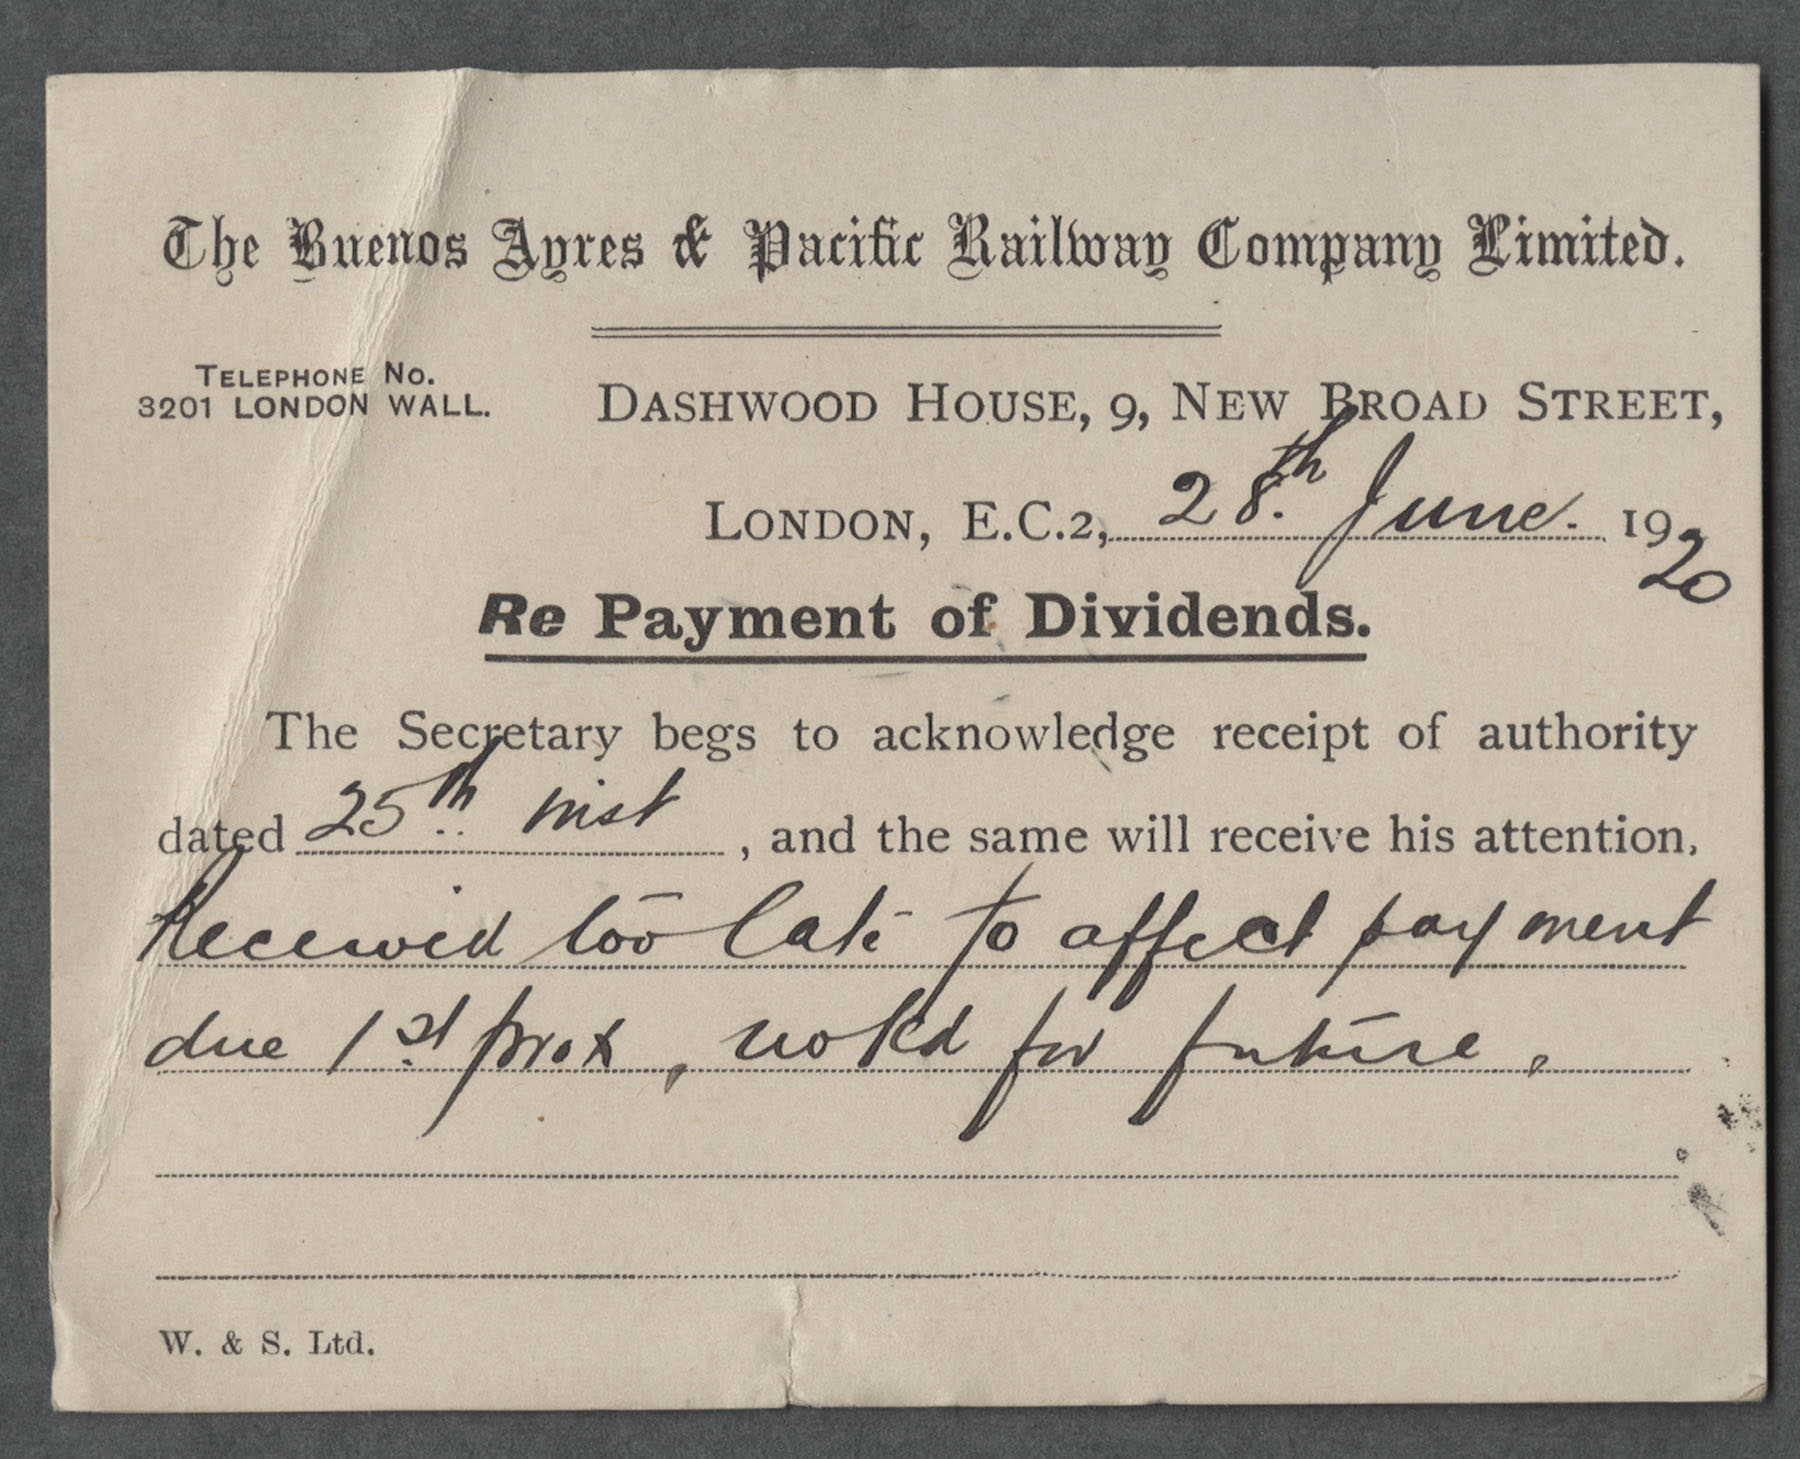 The Buenos Ayres & Pacific Railway Company Limited.
TELEPHONE NO.
3201 LONDON WALL.
DASHWOOD HOUSE, 9, NEW BROAD STREET,
LONDON, E.C.2, 28th June. 1920
Re Payment of Dividends.
The Secretary begs to acknowledge receipt of authority
dated 25th inst, and the same will receive his attention.
Received too late to affect payment
due 1st prox, noted for future.
W. & S. Ltd.